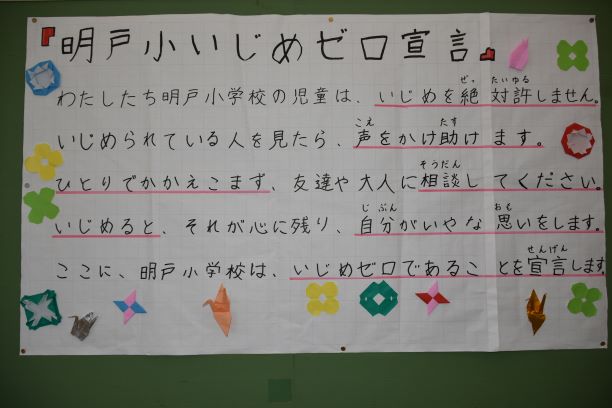 『明戸小いじめゼロ宣言』
わたしたち明戸小学校の児童は、いじめを絶対許しません。
いじめられている人を見たら、声をかけ助けます。
ひとりでかかえこまず、友達や大人に相談してください。
いじめると、それが心に残り、自分がいやな思いをします。
ここに、明戸小学校は、いじめゼロであることを宣言します